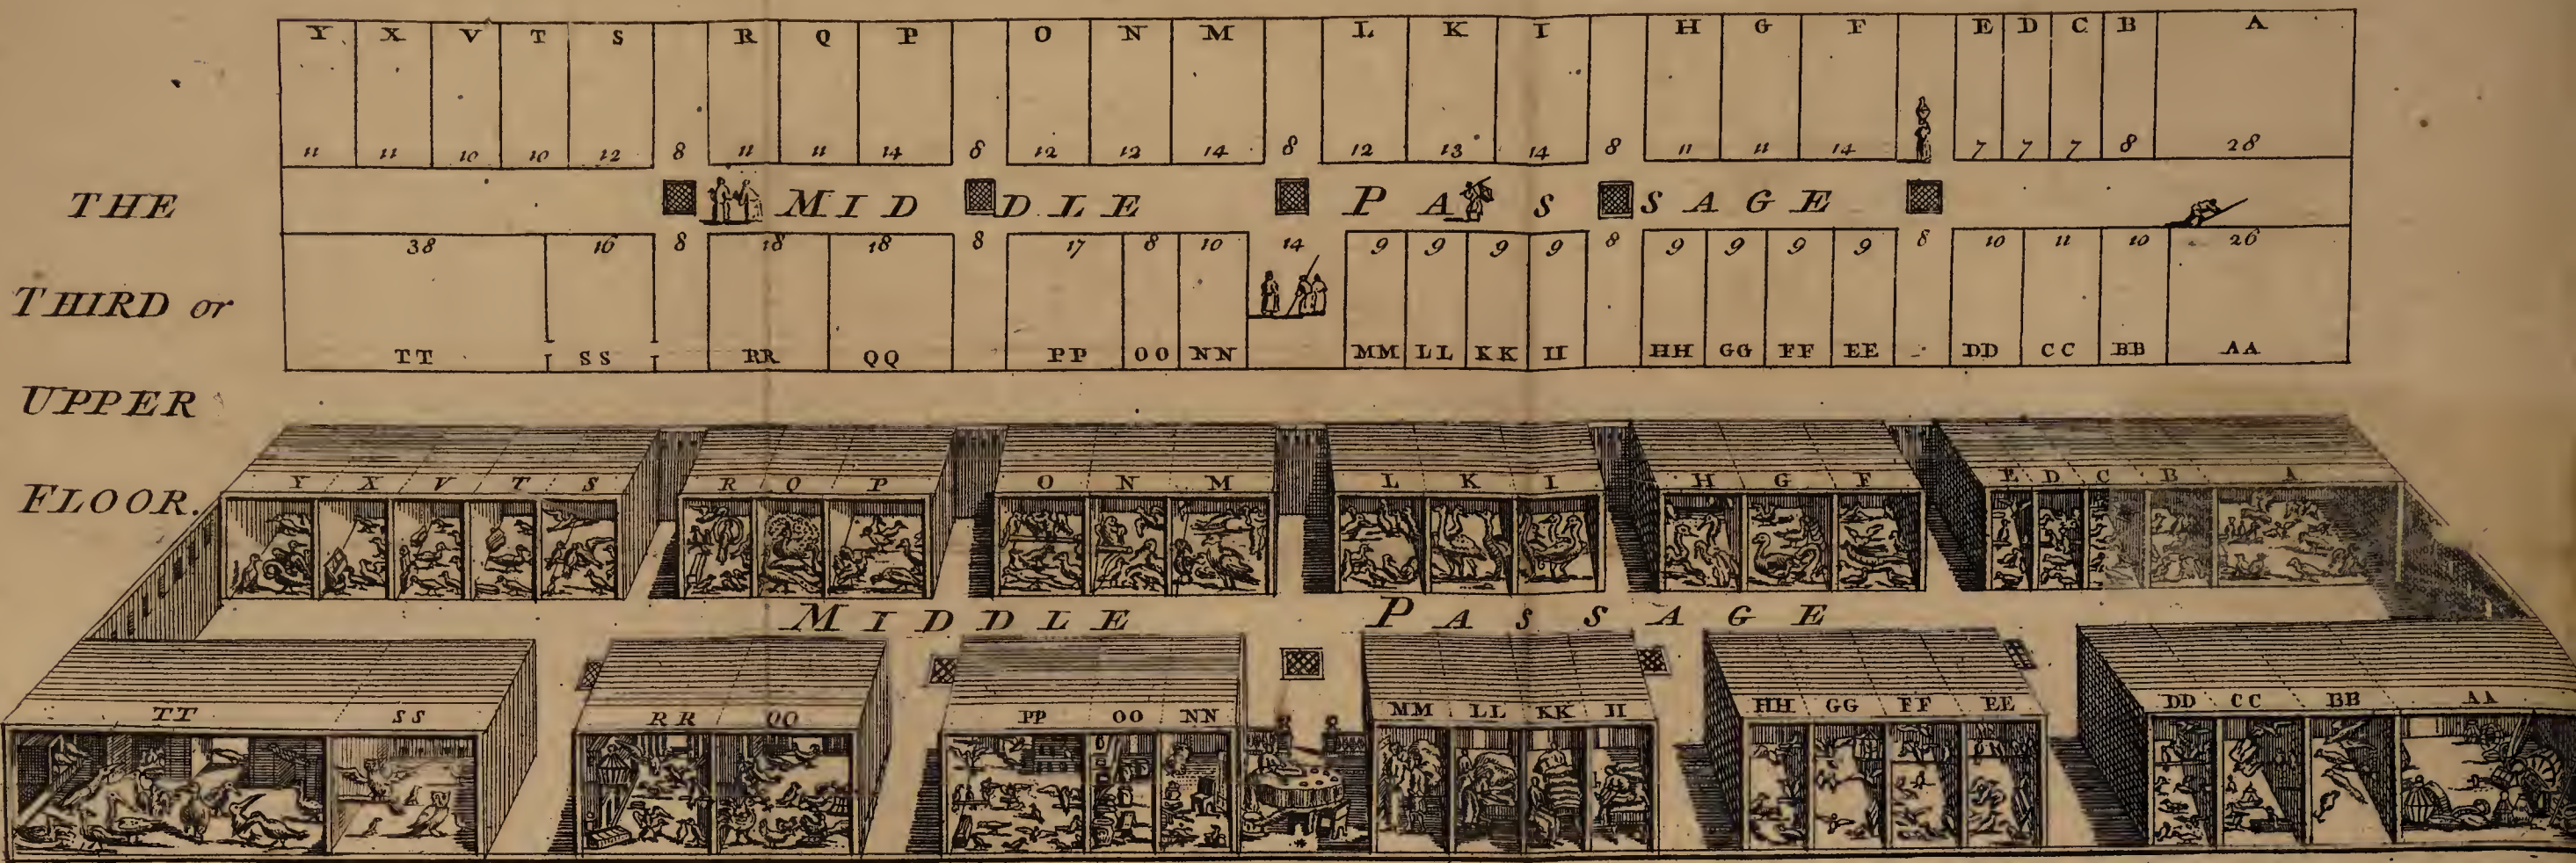 Y X V T S R Q P O N M L K I H G F E D C B A
11 11 10 10 12 8 11 11 14 8 12 12 14 8 12 13 14 8 11 11 14 7 7 7 8 28
THE
MIDDLE PASSAGE
38 16 8 18 18 8 17 8 10 14 9 9 9 9 8 9 9 9 9 8 10 11 10 26
THIRD or
TT SS RR QQ PP OO NN MM LL KK II HH GG FF EE DD CC BB AA
UPPER
FLOOR.
Y X V T S R Q P O N M L K I H G F E D C B A
MIDDLE PASSAGE
TT SS RR QQ PP OO NN MM LL KK II HH GG FF EE DD CC BB AA